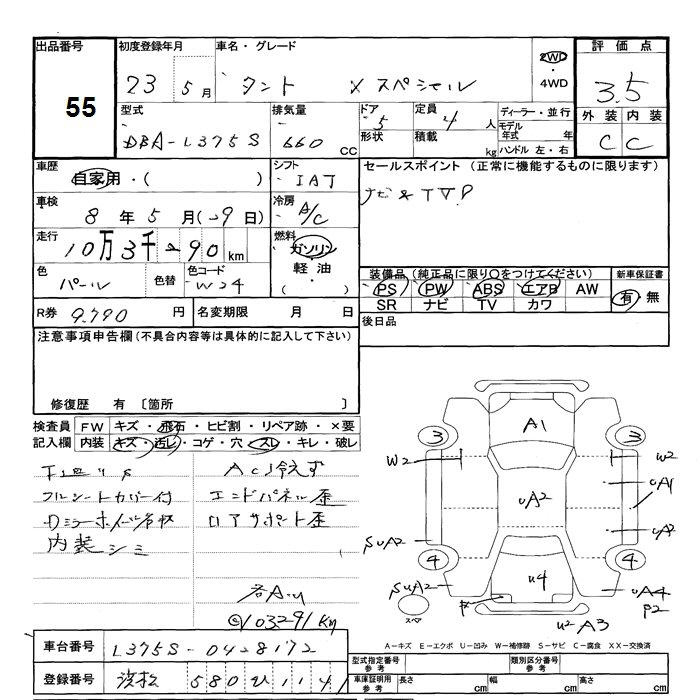 出品番号
55
初度登録年月
23 5月
車名・グレード
タント Xスペシャル
2WD
・
4WD
評価点
3.5
外装 内装
C C
型式
DBA-L375S
排気量
660 CC
ドア
5
形状
定員
4人
積載
kg
ディーラー・並行
モデル
年式 年
ハンドル 左・右
車歴
自家用・( )
シフト
IAT
セールスポイント (正常に機能するものに限ります)
ナビ&TV
車検
8年5月( 9日)
冷房
A/C
走行
10万3千 90km
燃料
ガソリン
軽油
( )
色
パール
色替
色コード
W24
装備品 (純正品に限り○をつけてください)
PS PW ABS エアB AW
SR ナビ TV カワ
新車保証書
有・無
R券 9.790円
名変期限 月 日
後日品
注意事項申告欄 (不具合内容等は具体的に記入して下さい)
修復歴 有 〔箇所 〕
検査員
記入欄
FW キズ・飛石・ヒビ割・リペア跡・×要
内装 キズ・汚レ・コゲ・穴・スレ・キレ・破レ
フルシートカバー付
内装シミ
AC冷えず
エンドパネル歪
ロアサポート歪
103291Km
車台番号 L375S-0428172
登録番号 浜松 580 ひ 1141
3 3
4 4
A1
W2
W2
UA1
UA2
UA2
SUA2
SUA2
U4
UA4
P2
U2A3
スペア
A-キズ E-エクボ U-凹み W-補修跡 S-サビ C-腐食 XX-交換済
型式指定番号
参考
類別区分番号
参考
車庫証明用
参考
長さ cm 幅 cm 高さ cm